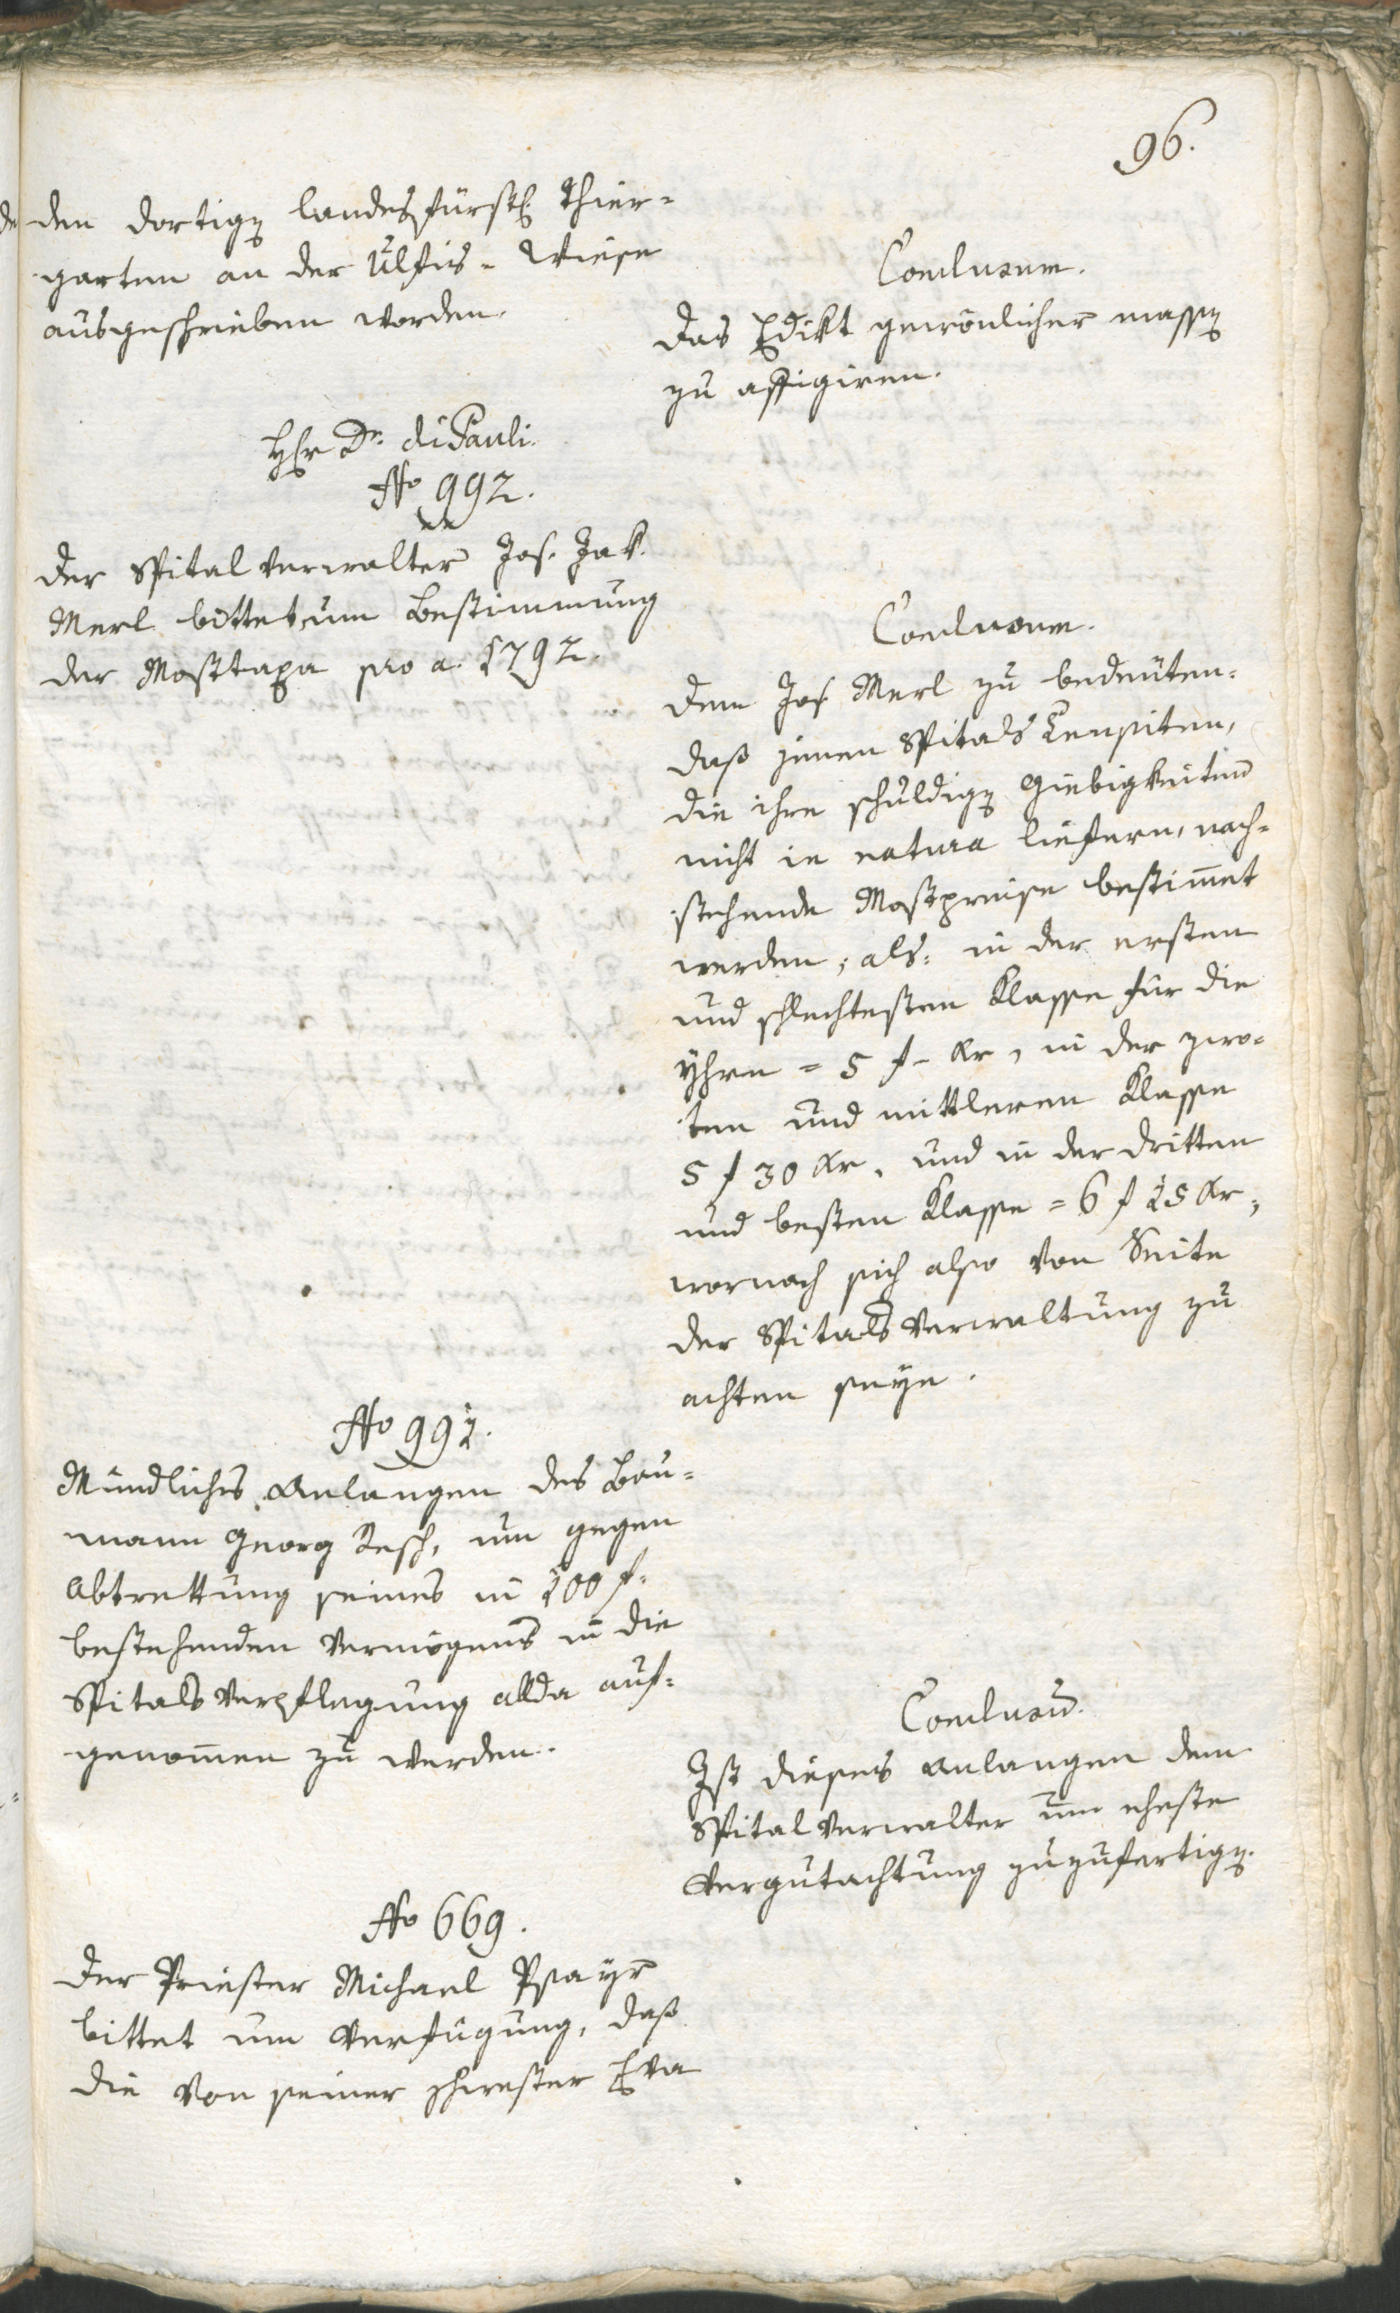 96.
den dortigen landesfürstl Thier-
garten an der Ulfis-Wiese
ausgeschrieben worden.
Conclusum.
das Edikt gewönlicher massen
zu affigiren.
Hr Dr. di Pauli.
No 992.
der Spitalverwalter Jos. Jak.
Merl bittet, um Bestimmung
der Mosttaxa pro a. 1792.
Conclusum.
dem Jos Merl zu bedeuten:
daß jenen Spitals Censiten,
die ihre schuldigen Giebigkeiten
nicht in natura liefern, nach-
stehende Mostpreise bestimet
werden, als: in der ersten
und schlechtesten Klasse für die
Yhrn = 5 f - Kr, in der zwo-
ten und mittleren Klasse
5 f 30 Kr, und in der dritten
und besten Klasse = 6 f 15 Kr,
wornach sich also von Seite
der Spitals Verwaltung zu
achten seye.
No 991.
Mündliches Anlangen des Bau-
mann Georg Resch, um gegen
Abtrettung seines in 100 f.
bestehenden Vermögens in die
Spitals Verpflegung allda auf-
genomen zu werden.
Conclusum.
Ist dieses Anlangen dem
Spitalverwalter um eheste
Vergutachtung zuzufertigen.
No 669.
Der Priester Michael Psayr
bittet um Verfügung, daß
die von seiner Schwester Eva